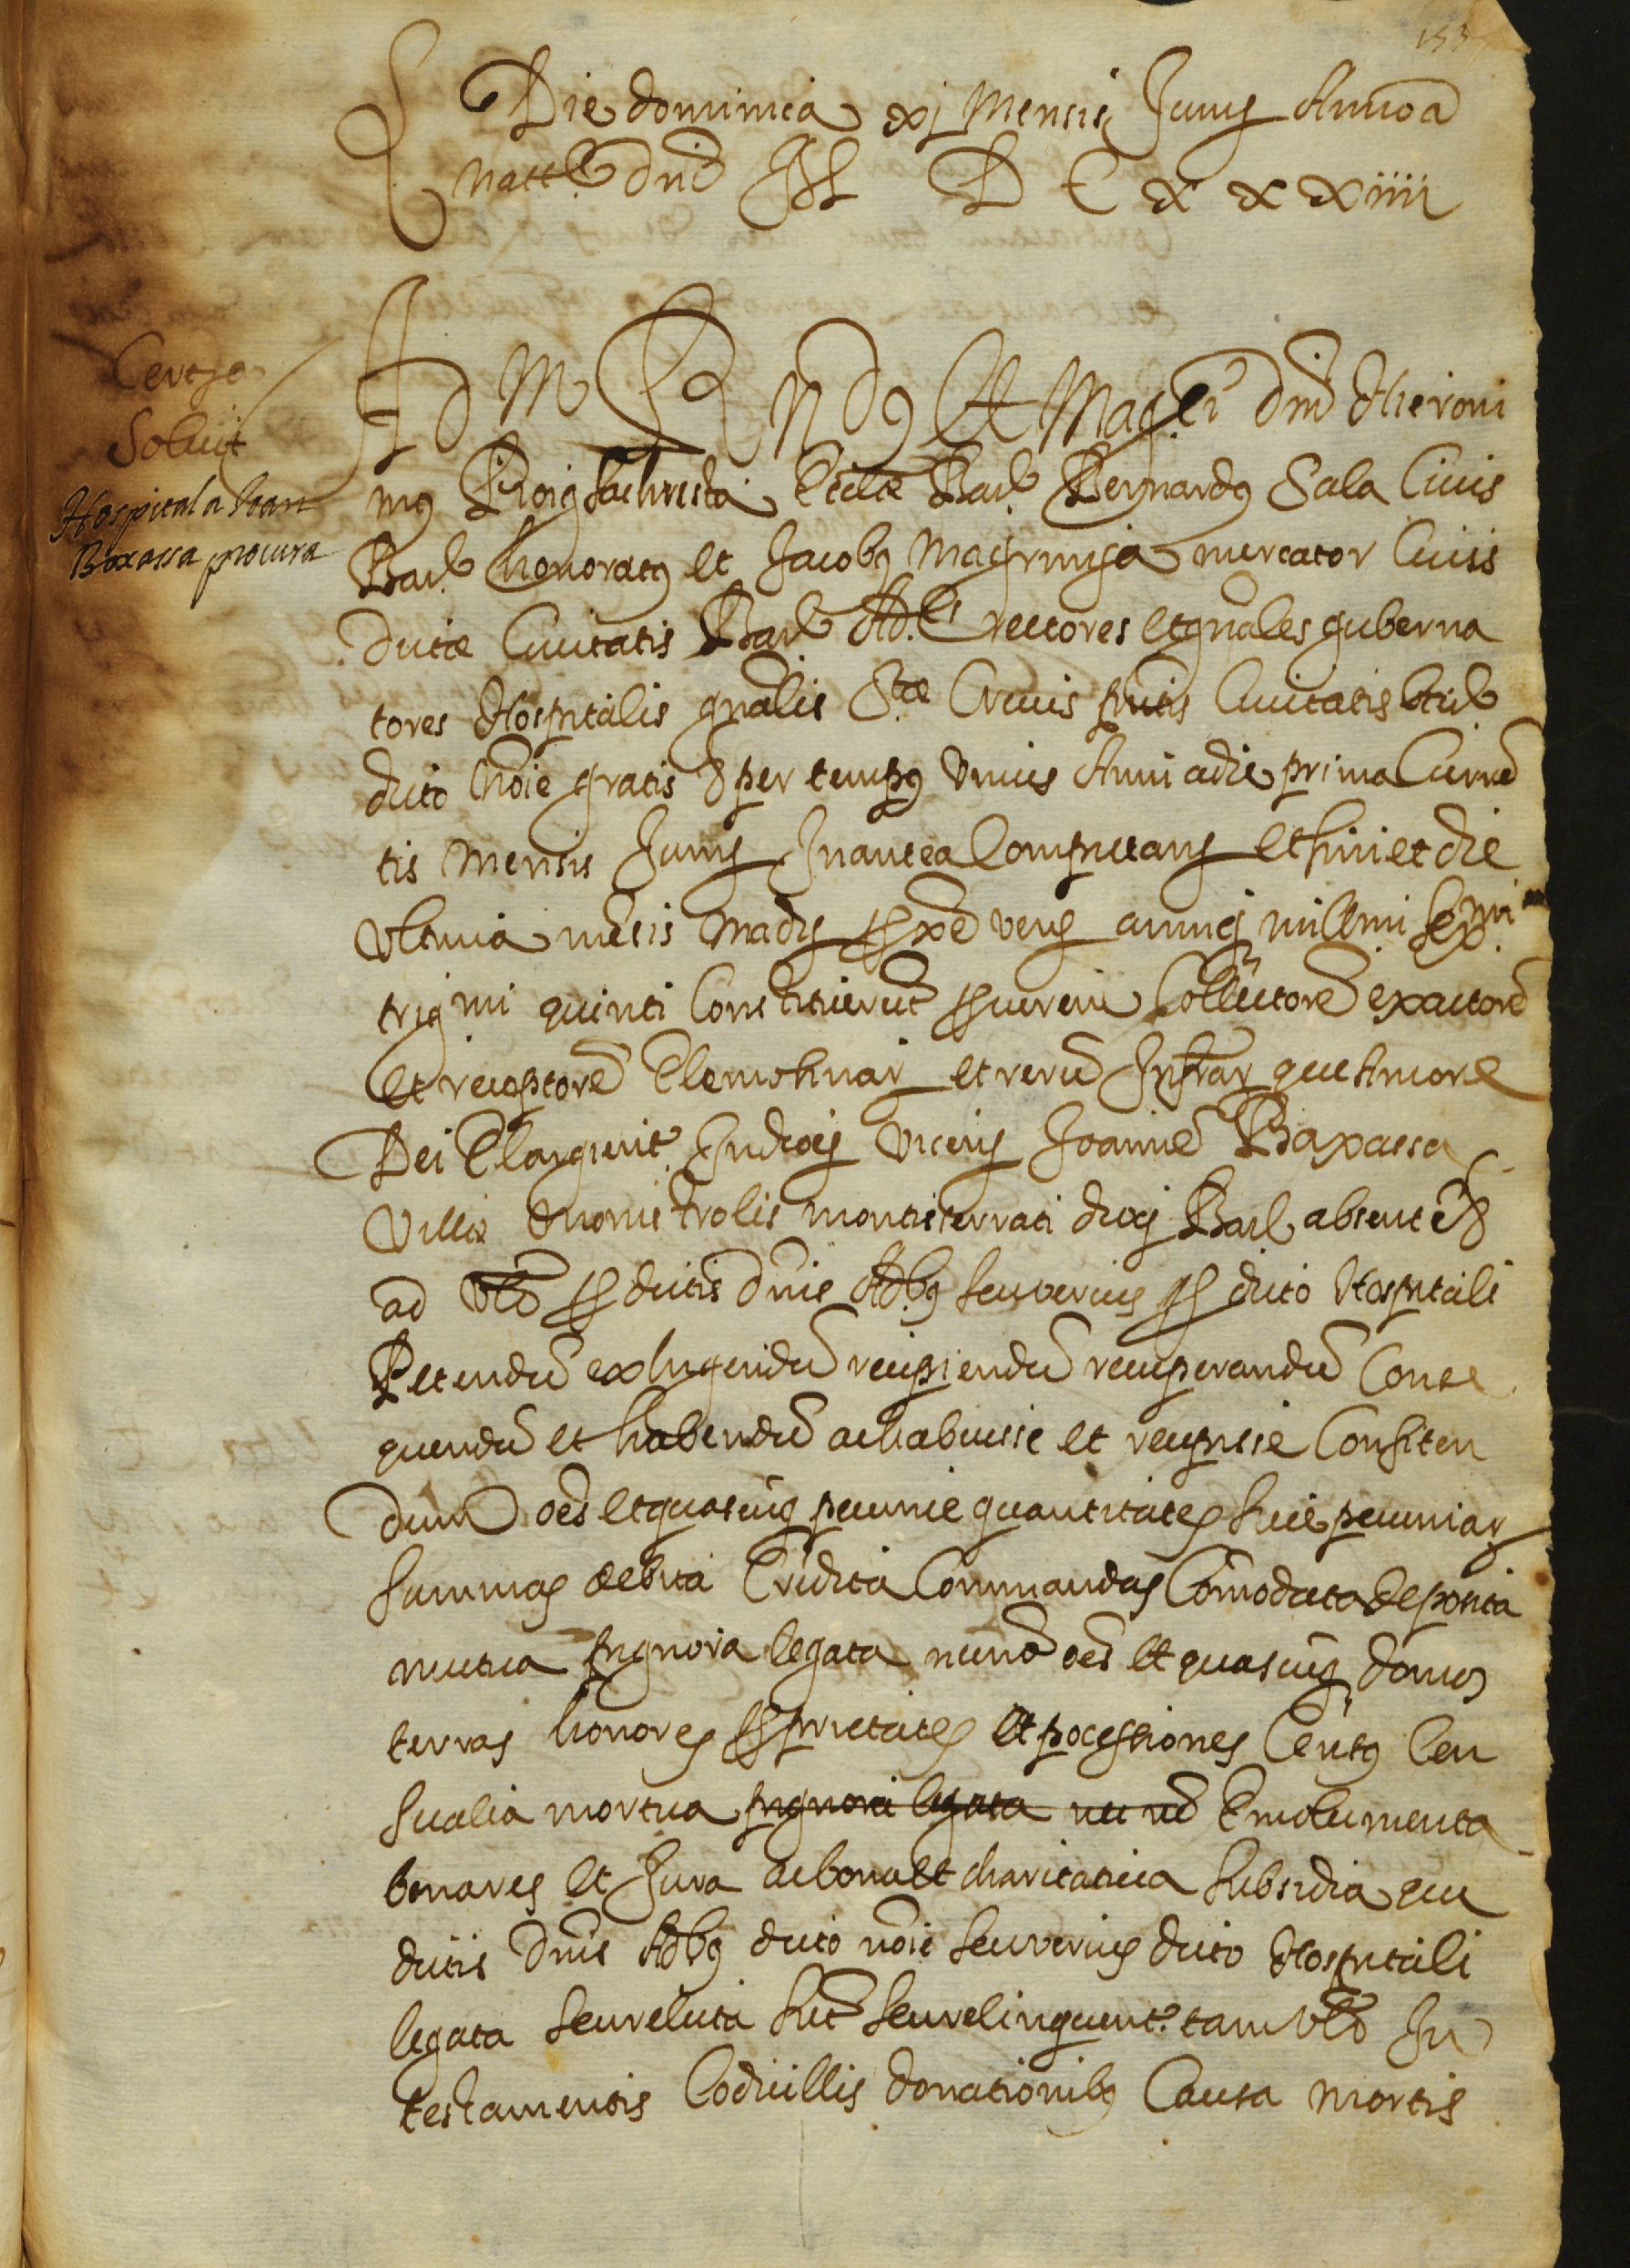 153
Die dominica xj mensis Junij Anno a
natte dni M D C x x xiiii
Cerge
Soluit
Hospital a Joan
Baxassa procura
Adm Rndus Et Magci dni Hieroni
mus Roig sachrista Ecclæ Barl Bernardus Sala Civis
Barl honoratus et Jacobus Magrinya mercator Civis
dictæ Civitatis Barl Ad.les rectores et gnales guberna
tores Hospitalis gnalis Stæ Crucis pntis Civitatis
dicto noie gratis & per tempus unius Anni a die prima Curren
tis mensis Junij In antea Computans et finiet die
ultima mesis madij pxe venj annuj millmi sexmi
trigmi quinti Constituerut Collectore exactore
et receptore Elemosinar et reru Infrar que Amore
Dei Elargient Indicis vicerij Joanne Baxassa
Villæ Monistrolis montiserrati dioc Barl absente &
ad dictis dnis Adbus seu verius dicto Hospitali
Petendu exhigendu recipiendu recuperandu Conse
quendu et habendu ac habuisse et recepisse Confiten
dum oes et quascuq pecunie quantitates sive pecuniar
summas debita Credita Commandas Comodata deposita
mutua pignora legata necno oes et quascuq domos
terras honores pprietates et pocessiones Census Cen
sualia mortua pignora legata nec no Emolumenta
bona res et Jura ac bona et charitativa subsidia que
dictis dnis Adbus dicto noie seu verius dicto Hospitali
legata seu relicta sut seu relinquent tam In
testamentis Codicillis donationibus Causa mortis